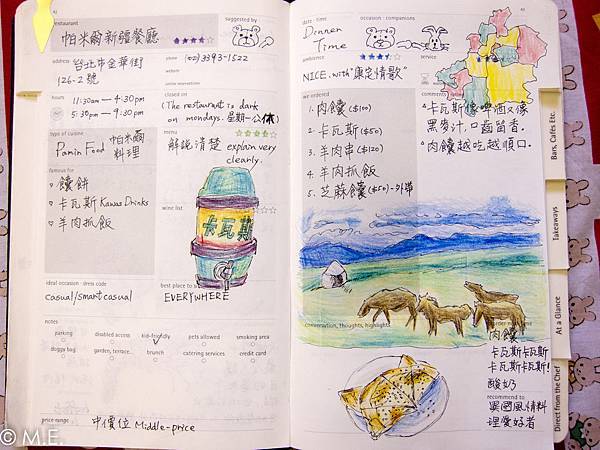 42
restaurant
suggested by
帕米爾新疆餐廳
address
台北市金華街
126-2號
phone
(02)3393-1522
website
online reservations
hours
11:30am — 4:30pm
5:30pm — 9:30pm
closed on
(The restaurant is dark
on mondays. 星期一公休)
type of cuisine
Pamir Food 帕米爾
料理
menu
解說清楚 explain very
clearly.
famous for
饢餅
卡瓦斯 Kawas Drinks
羊肉抓飯
wine list
卡瓦斯
ideal occasion · dress code
casual/smart casual
best place to s
EVERYWHERE
notes
parking
disabled access
kid-friendly
pets allowed
smoking area
doggy bag
garden, terrace...
brunch
catering services
credit card
price range
中價位 Middle-price
© M.E.
date · time
Dinner
Time
occasion · companions
43
ambience
NICE. with "康定情歌"
service
we ordered
1. 肉饢 ($100)
2. 卡瓦斯 ($50)
3. 羊肉串 ($120)
4. 羊肉抓飯
5. 芝蔴饢 ($50)-外帶
comments
卡瓦斯像啤酒又像
黑麥汁. 口齒留香.
肉饢越吃越順口.
conversation, thoughts, highlights
order next time
肉饢
卡瓦斯卡瓦斯
卡瓦斯卡瓦斯!
酸奶
recommend to
異國風情料
理愛好者
Bars, Cafés Etc.
Takeaways
At a Glance
Direct from the Chef